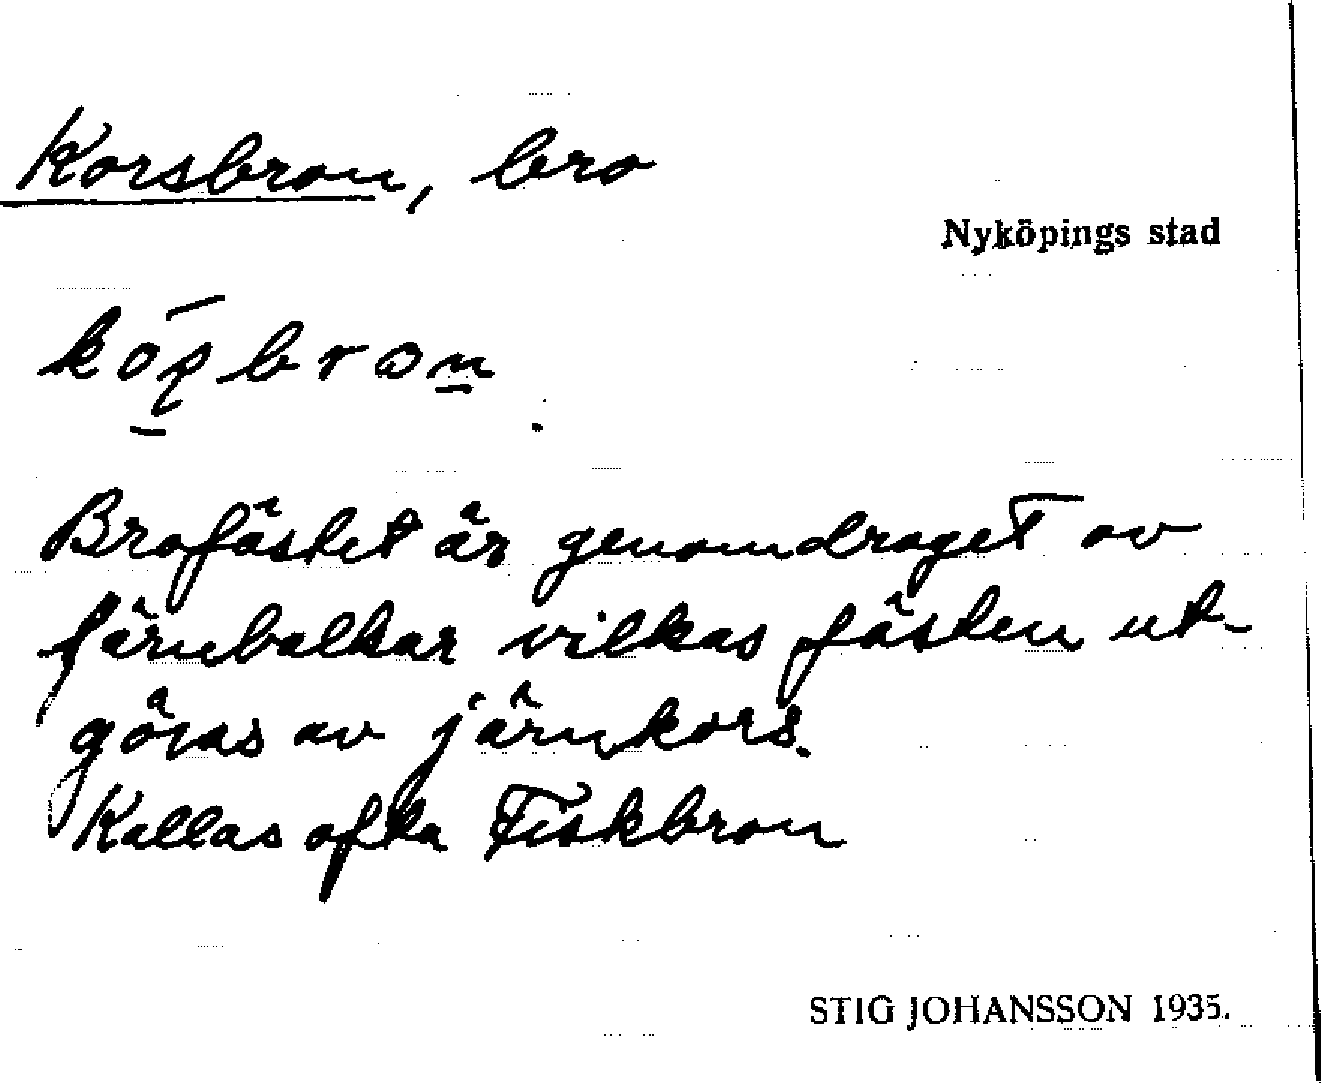 Korsbron, bro
Nyköpings stad
Brofästet är genomdraget av
järnbalkar vilkas fästen ut-
göras av järnkors.
Kallas ofta Fiskbron
STIG JOHANSSON 1935.